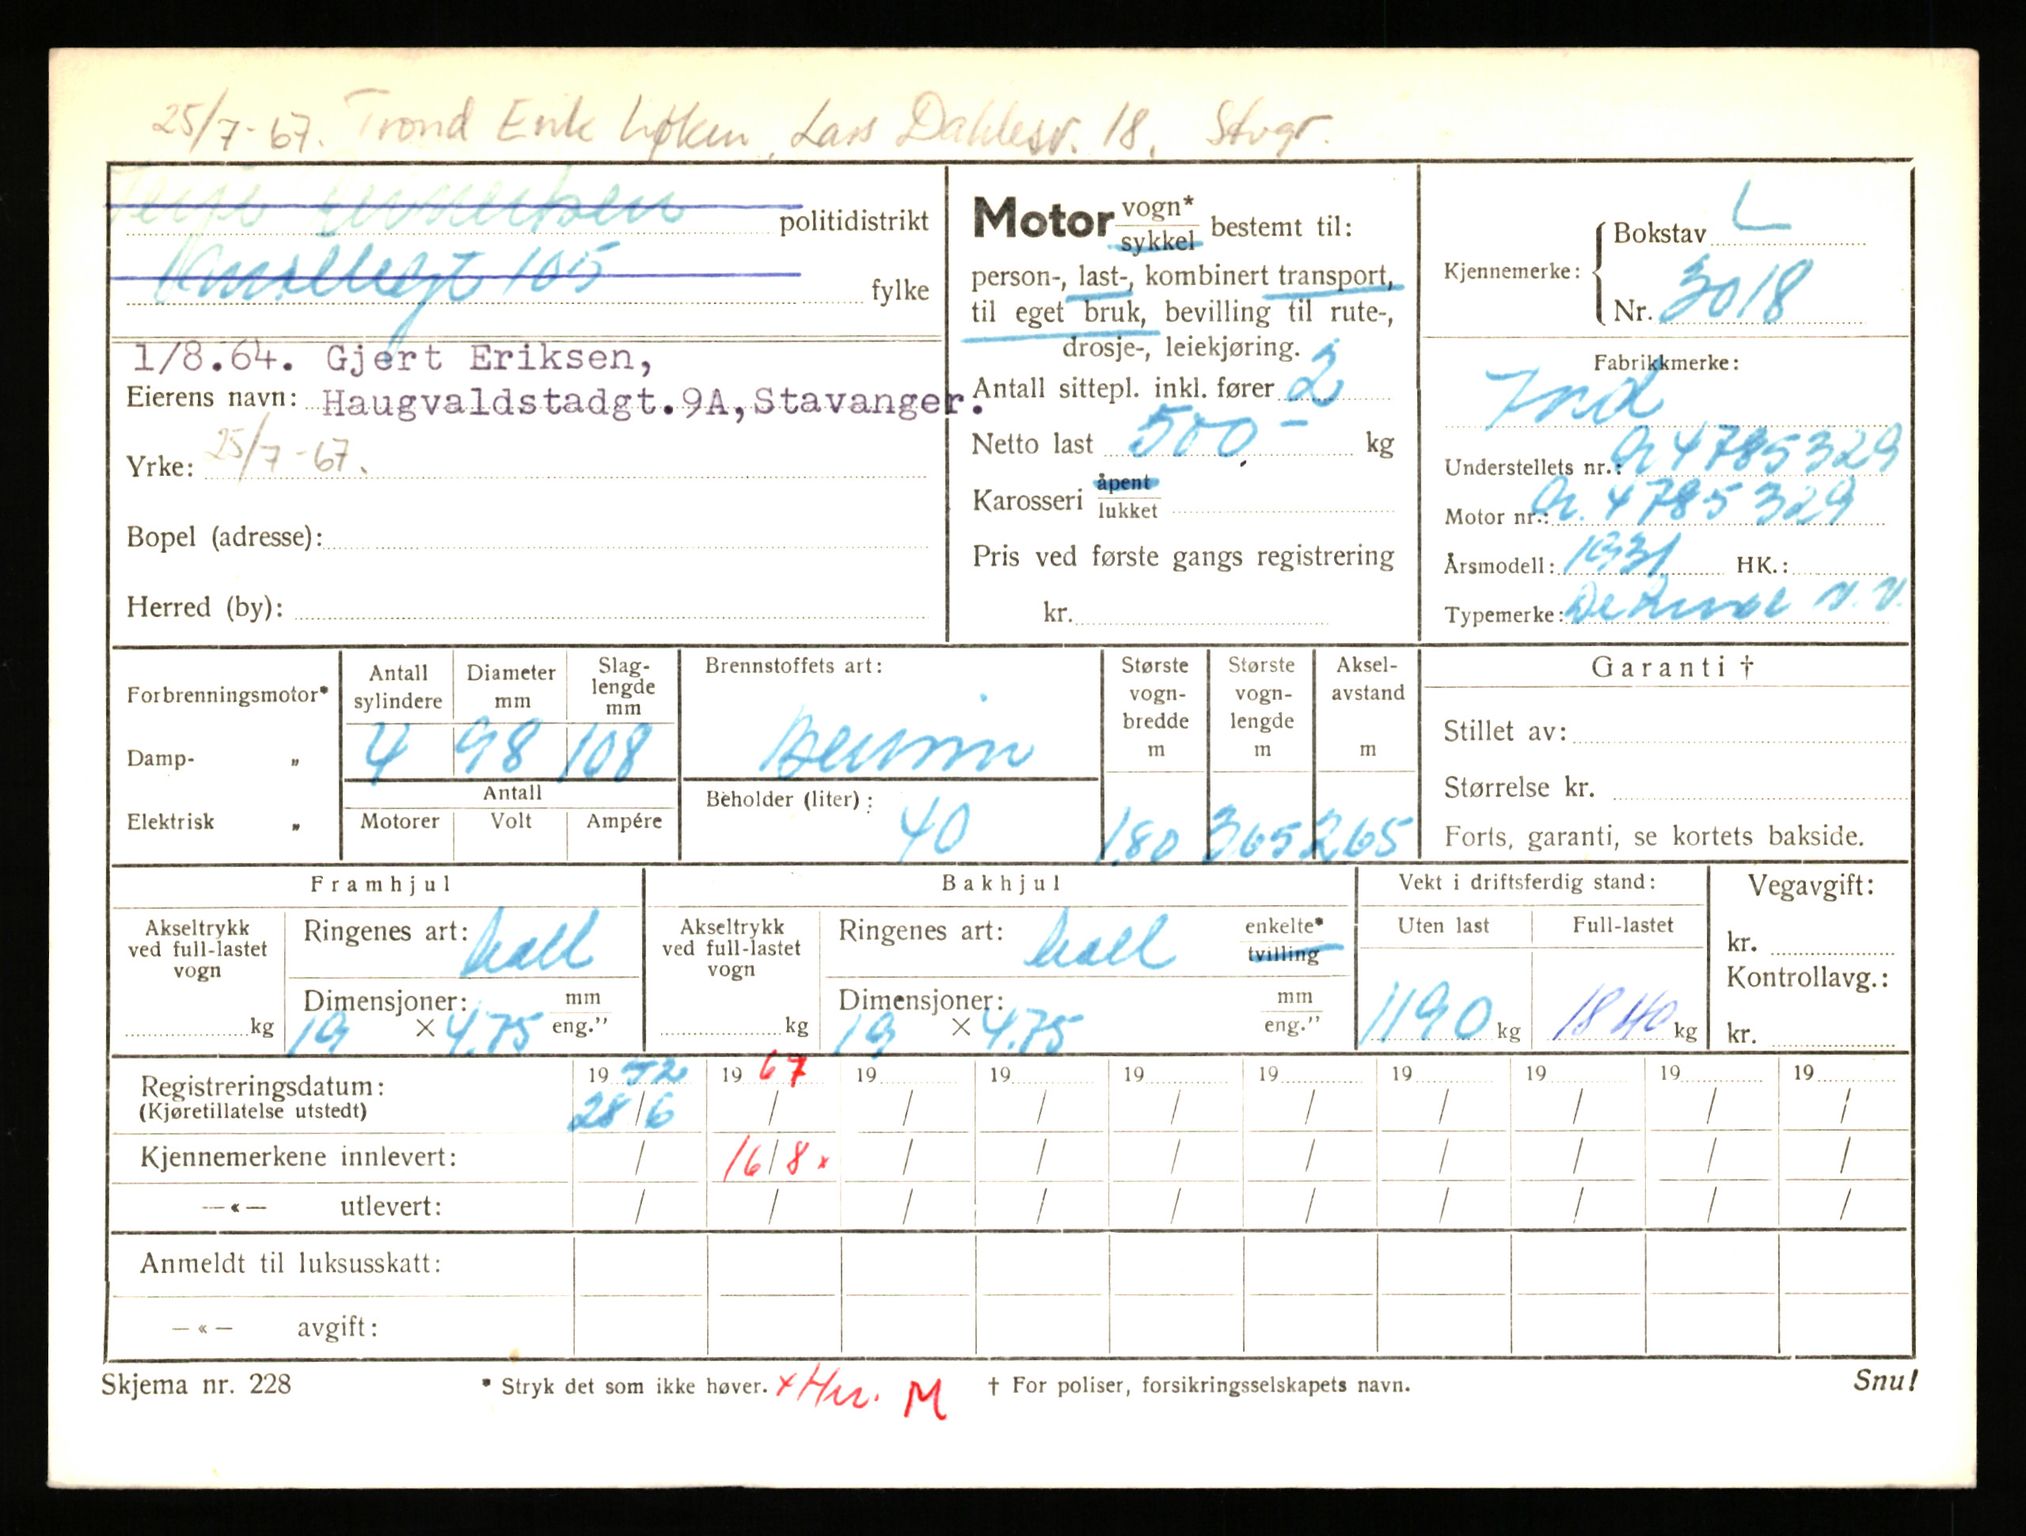 25/7-67. Trond Erik Løken, Lars Dahlesv. 18, Stvgr.
politidistrikt
105
fylke
1/8.64. Gjert Eriksen,
Eierens navn: Haugvaldstadgt.9A, Stavanger.
Yrke: 25/7-67.
Bopel (adresse):
Herred (by):
Motor vogn* sykkel bestemt til:
person-, last-, kombinert transport,
til eget bruk, bevilling til rute-,
drosje-, leiekjøring.
Antall sittepl. inkl. fører 2
Netto last 500 - kg
Karosseri åpent lukket
Pris ved første gangs registrering
kr.
Kjennemerke: Bokstav L
Nr. 3018
Fabrikkmerke:
Ford
Understellets nr.: A 4785329
Motor nr.: A. 4785329
Årsmodell: 1931 HK.:
Typemerke: De Luxe V.V.
Forbrenningsmotor*
Damp- "
Elektrisk "
Antall sylindere
4
Diameter mm
98
Slag-lengde mm
108
Antall
Motorer Volt Ampére
Brennstoffets art:
Bensin
Beholder (liter):
40
Største vogn-bredde m
1.80
Største vogn-lengde m
3.65
Aksel-avstand m
2.65
Garanti †
Stillet av:
Størrelse kr.
Forts, garanti, se kortets bakside.
Framhjul
Akseltrykk ved full-lastet vogn
kg
Ringenes art:
Dimensjoner: mm
19 × 4.75 eng."
Bakhjul
Akseltrykk ved full-lastet vogn
kg
Ringenes art: enkelte* tvilling
Dimensjoner: mm
19 × 4.75 eng."
Vekt i driftsferdig stand:
Uten last Full-lastet
1190 kg 1840 kg
Vegavgift:
kr.
Kontrollavg.:
kr.
Registreringsdatum: 1952 1967 19 19 19 19 19 19 19 19
(Kjøretillatelse utstedt) 28/6 / / / / / / / / /
Kjennemerkene innlevert: / 16/8 x / / / / / / / /
—«— utlevert: / / / / / / / / / /
Anmeldt til luksusskatt:
—«— avgift:
Skjema nr. 228
* Stryk det som ikke høver. x M
† For poliser, forsikringsselskapets navn.
Snu!